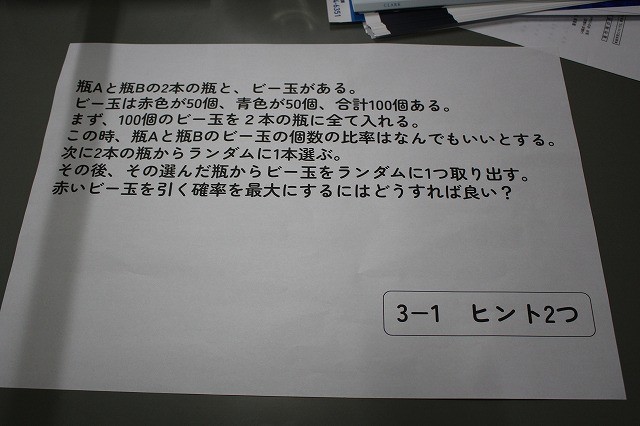 瓶Aと瓶Bの2本の瓶と、ビー玉がある。
ビー玉は赤色が50個、青色が50個、合計100個ある。
まず、100個のビー玉を２本の瓶に全て入れる。
この時、瓶Aと瓶Bのビー玉の個数の比率はなんでもいいとする。
次に2本の瓶からランダムに1本選ぶ。
その後、その選んだ瓶からビー玉をランダムに1つ取り出す。
赤いビー玉を引く確率を最大にするにはどうすれば良い？
3－1　ヒント2つ